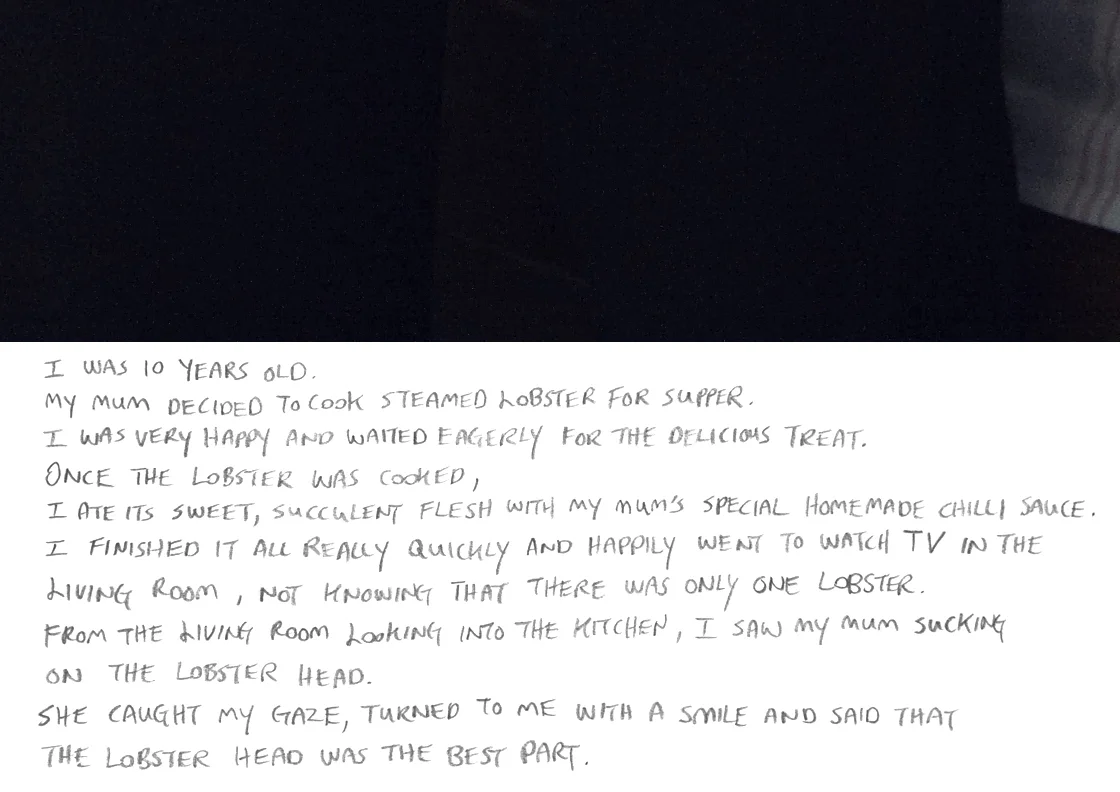 I WAS 10 YEARS OLD.
MY MUM DECIDED TO COOK STEAMED LOBSTER FOR SUPPER.
I WAS VERY HAPPY AND WAITED EAGERLY FOR THE DELICIOUS TREAT.
ONCE THE LOBSTER WAS COOKED,
I ATE ITS SWEET, SUCCULENT FLESH WITH MY MUM'S SPECIAL HOMEMADE CHILLI SAUCE.
I FINISHED IT ALL REALLY QUICKLY AND HAPPILY WENT TO WATCH TV IN THE
LIVING ROOM, NOT KNOWING THAT THERE WAS ONLY ONE LOBSTER.
FROM THE LIVING ROOM LOOKING INTO THE KITCHEN, I SAW MY MUM SUCKING
ON THE LOBSTER HEAD.
SHE CAUGHT MY GAZE, TURNED TO ME WITH A SMILE AND SAID THAT
THE LOBSTER HEAD WAS THE BEST PART.